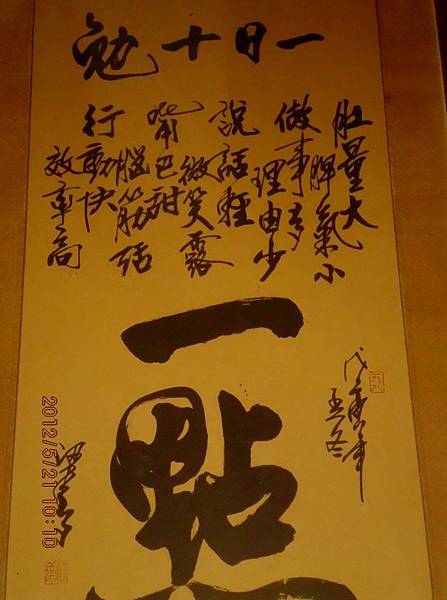 一日十勉
肚量大
脾氣小
做事多
理由少
說話輕
微笑露
嘴巴甜
腦筋活
行動快
效率高
一點
2012/5/21 10:10